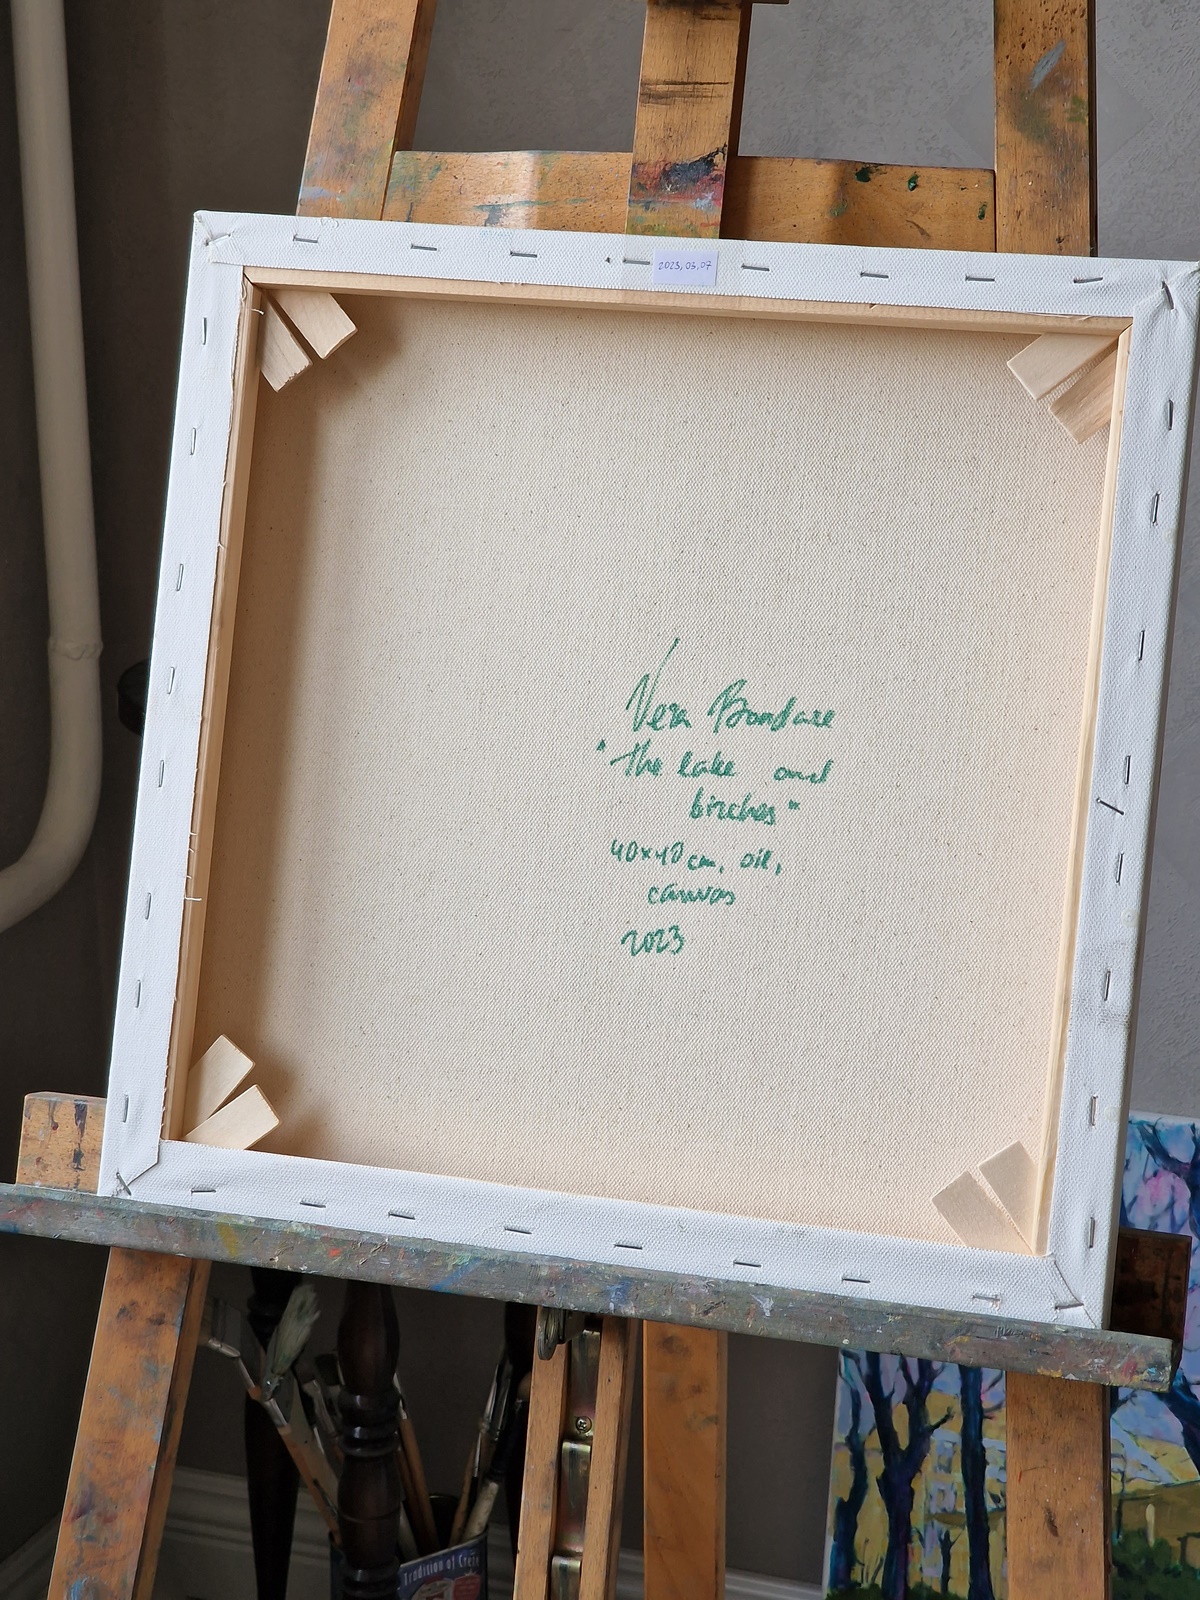 2023.03.07
Vera Bondare
"The lake and
birches"
40x40 cm, oil,
canvas
2023
Tradition of